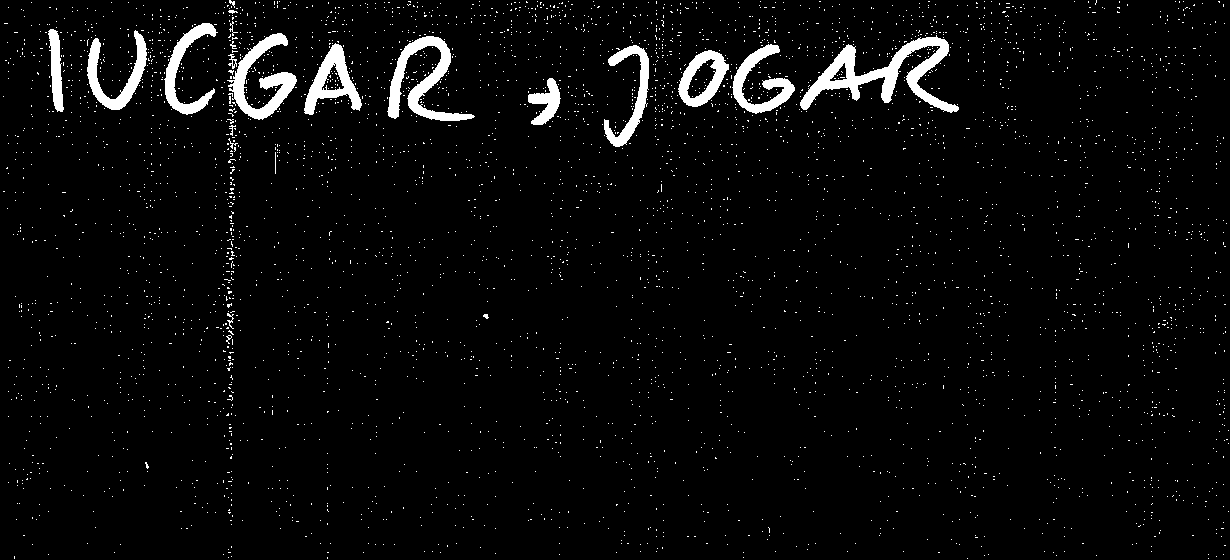 IUCGAR → JOGAR